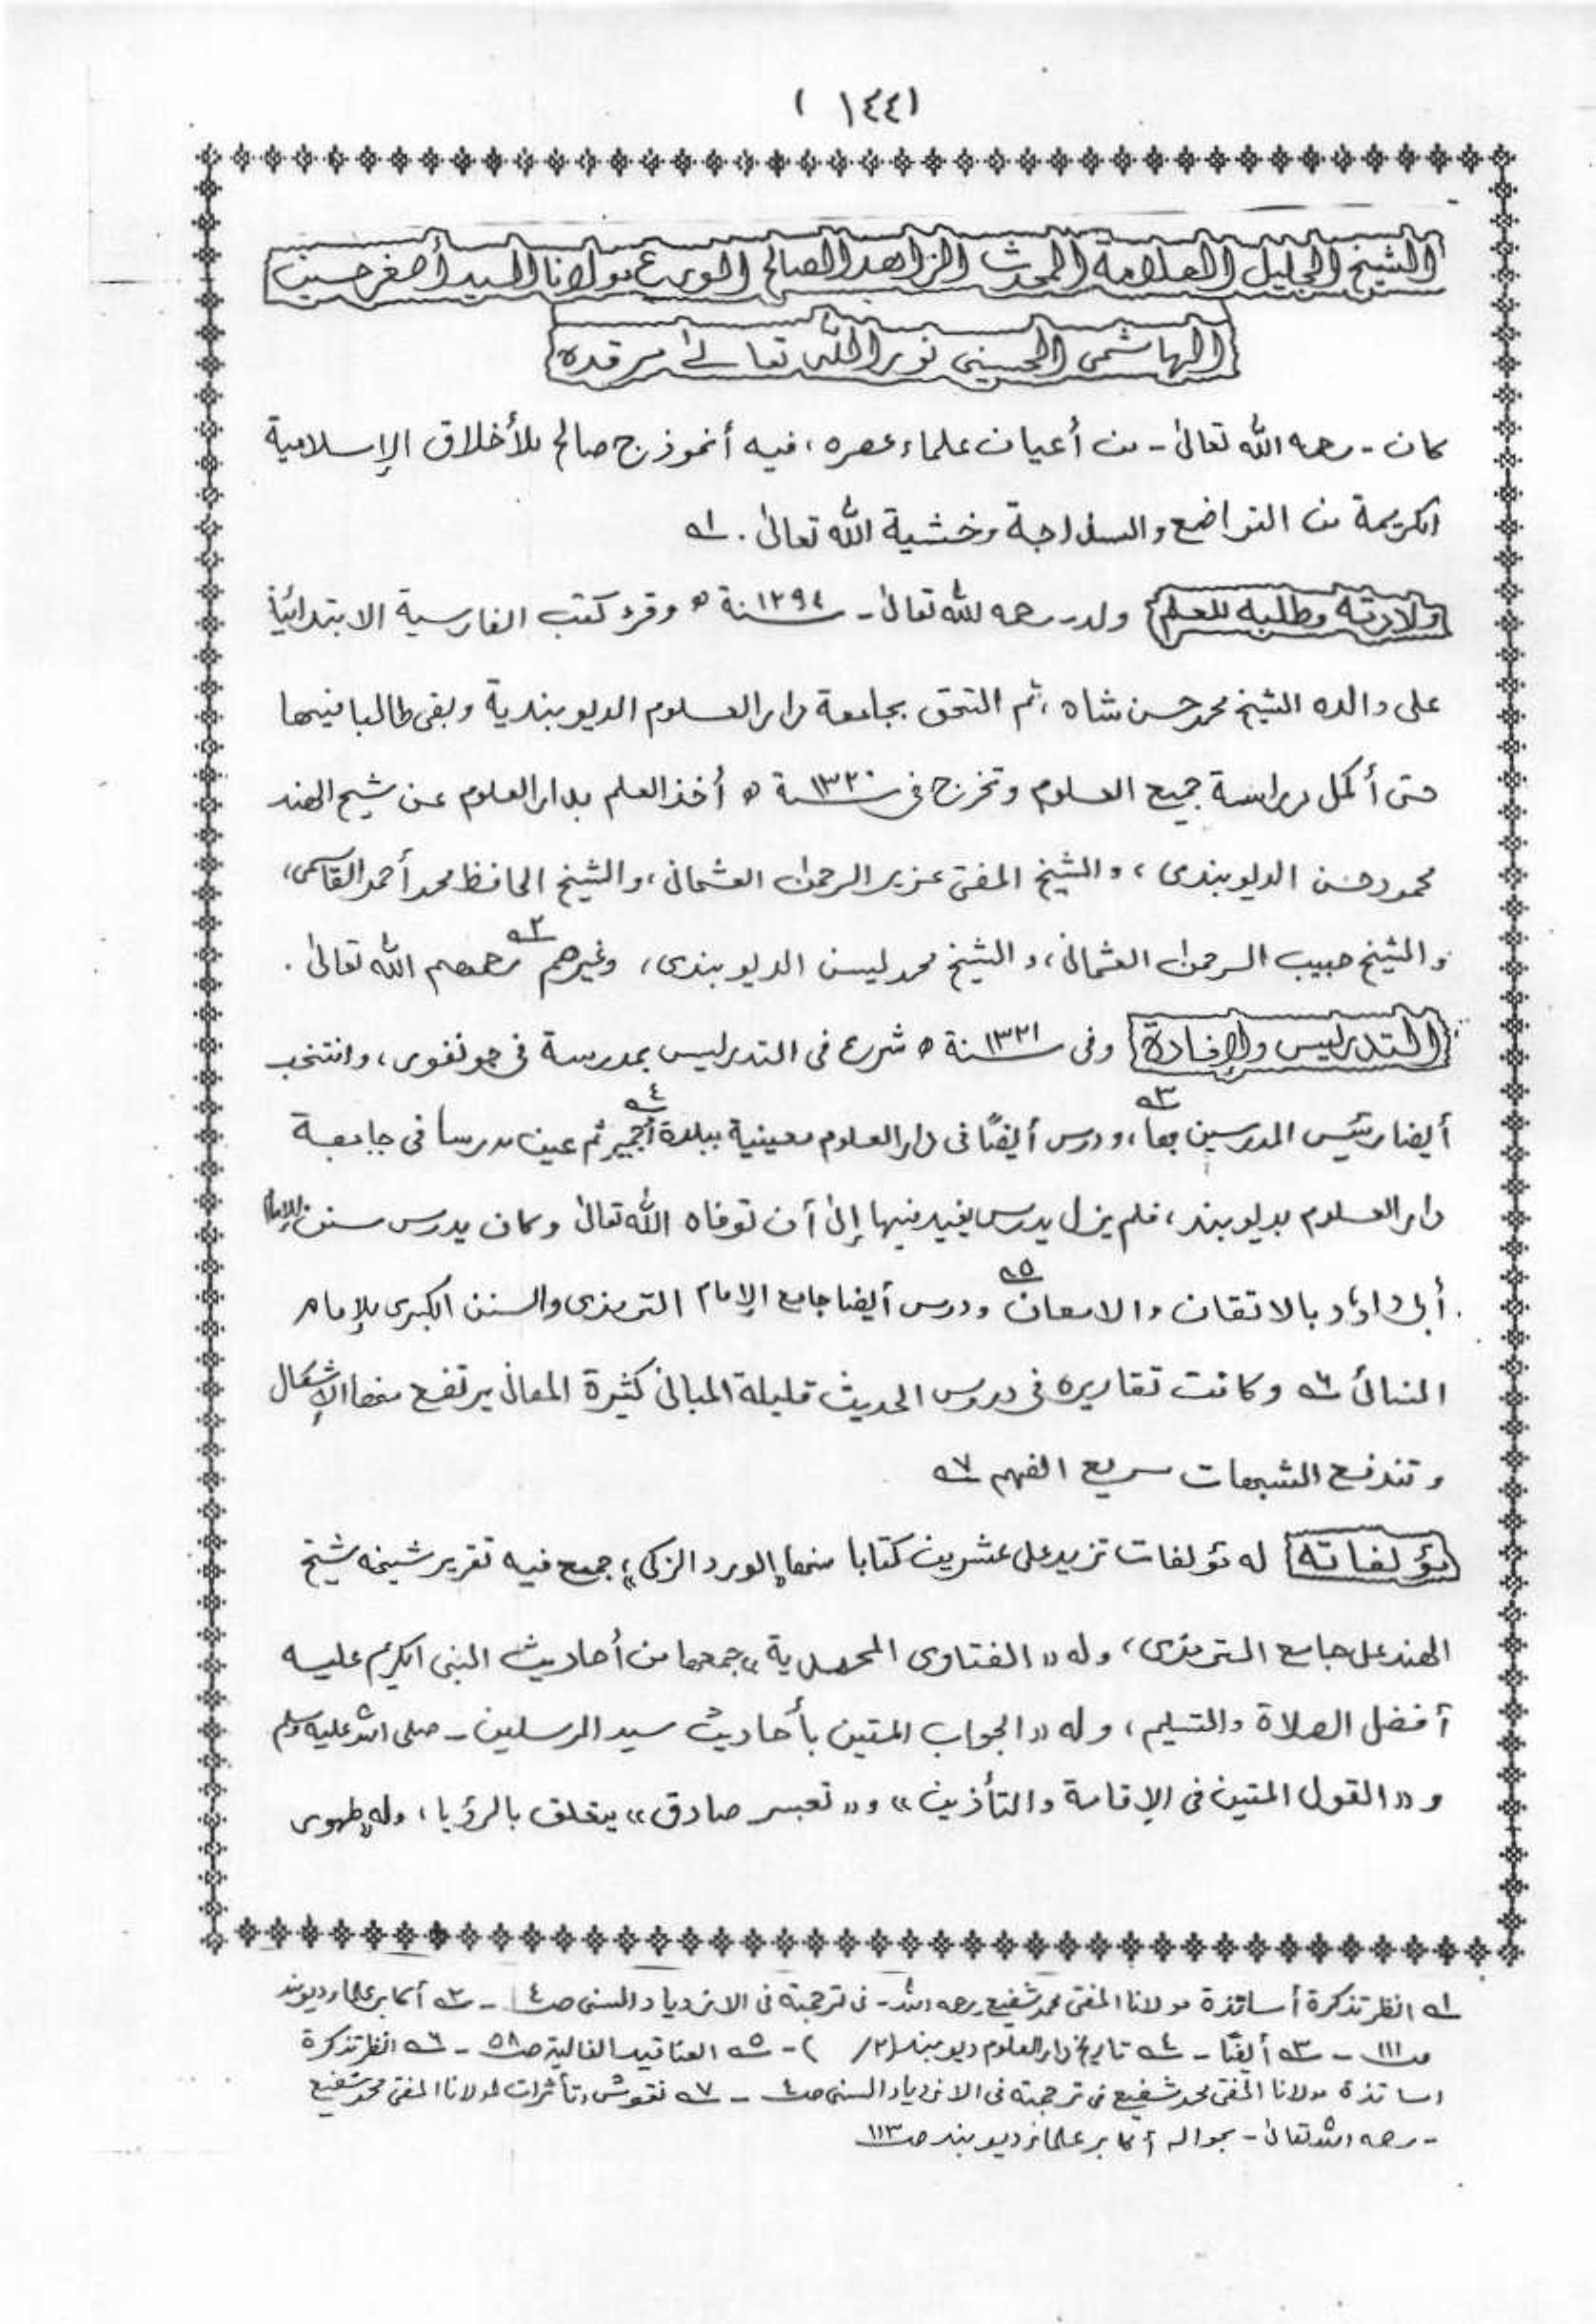 (١٤٤)
الشيخ الجليل العلامة المحدث الزاهد الصالح الورع مولانا السيد أصغر حسين
الهاشمي الحسيني نور الله تعالى مرقده
كان - رحمه الله تعالى - من أعيان علماء عصره، فيه أنموذج صالح للأخلاق الإسلامية
الكريمة من التواضع والسذاجة وخشية الله تعالى . ١ـه
ولادته وطلبه للعلم ولد رحمه الله تعالى - سنة ١٢٩٤ ه وقرء كتب الفارسية الابتدائية
على والده الشيخ محمد حسن شاه، ثم التحق بجامعة دار العلوم الديوبندية وبقى طالبا فيها
حتى أكمل دراسة جميع العلوم وتخرج في سنة ١٣٢٠ ه أخذ العلم بدار العلوم عن شيخ الهند
محمود حسن الديوبندى، والشيخ المفتى عزيز الرحمن العثمانى، والشيخ الحافظ محمد أحمد القاسمى،
والشيخ حبيب الرحمن العثمانى، والشيخ محمد يٰسن الديوبندى، وغيرهم ٢ـه رحمهم الله تعالى .
التدريس والإفادة وفى سنة ١٣٢١ ه شرع فى التدريس بمدرسة في جونفور، وانتخب
أيضا رئيس المدرسين بها ٣ـه، ودرس أيضًا فى دار العلوم معينية ببلدة أجمير ٤ـه ثم عين مدرسا فى جامعة
دار العلوم بديوبند، فلم يزل يدرس يفيد فيها إلى أن توفاه الله تعالى وكان يدرس سنن الإمام
أبى داؤد بالاتقان والامعان ٥ـه ودرس أيضا جامع الإمام الترمذى والسنن الكبرى للإمام
النسائى ٦ـه وكانت تقاريره فى دروس الحديث قليلة المبانى كثيرة المعانى يرتفع منها الإشكال
وتندفع الشبهات سريع الفهم ٧ـه
مؤلفاته له مؤلفات تزيد على عشرين كتابا منها «الورد الزكى» جمع فيه تقرير شيخه شيخ
الهند على جامع الترمذى، وله «الفتاوى المحمدية» جمعها من أحاديث النبى الكريم عليه
أفضل الصلاة والتسليم، وله «الجواب المتين بأحاديث سيد المرسلين - صلى الله عليه وسلم
و «القول المتين فى الإقامة والتأذين» و «تعبير صادق» يتعلق بالرؤيا، وله «ظهور
١ـه انظر تذكرة أساتذة مولانا المفتى محمد شفيع رحمه الله - فى ترجمته فى الازدياد السنى صـ٤ - ٢ـه أكابر علماء ديوبند
صـ١١١ - ٣ـه أيضًا - ٤ـه تاريخ دار العلوم ديوبند (٢/ ) - ٥ـه العناقيد الغالية صـ٥٨ - ٦ـه انظر تذكرة
اساتذة مولانا المفتى محمد شفيع فى ترجمته فى الازدياد السنى صـ٤ - ٧ـه نقوش وتأثرات لمولانا المفتى محمد شفيع
- رحمه الله تعالى - بحواله أكابر علماء ديوبند صـ١١٣